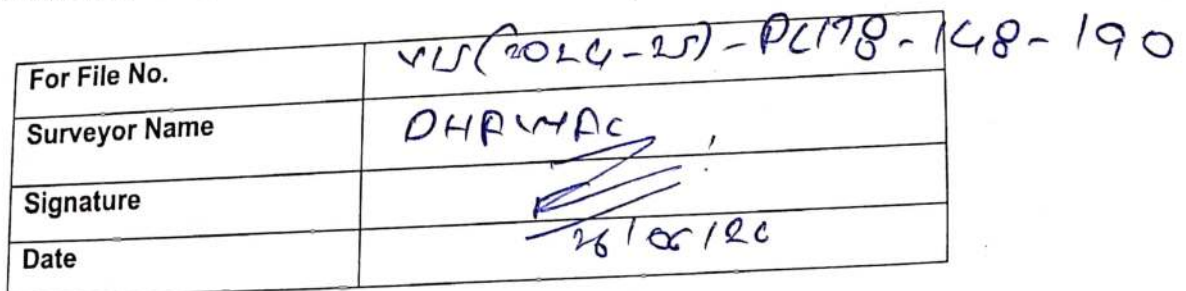 For File No. VIS(2024-25)-PL178-148-190
Surveyor Name DHAWAL
Signature
Date 26/06/24